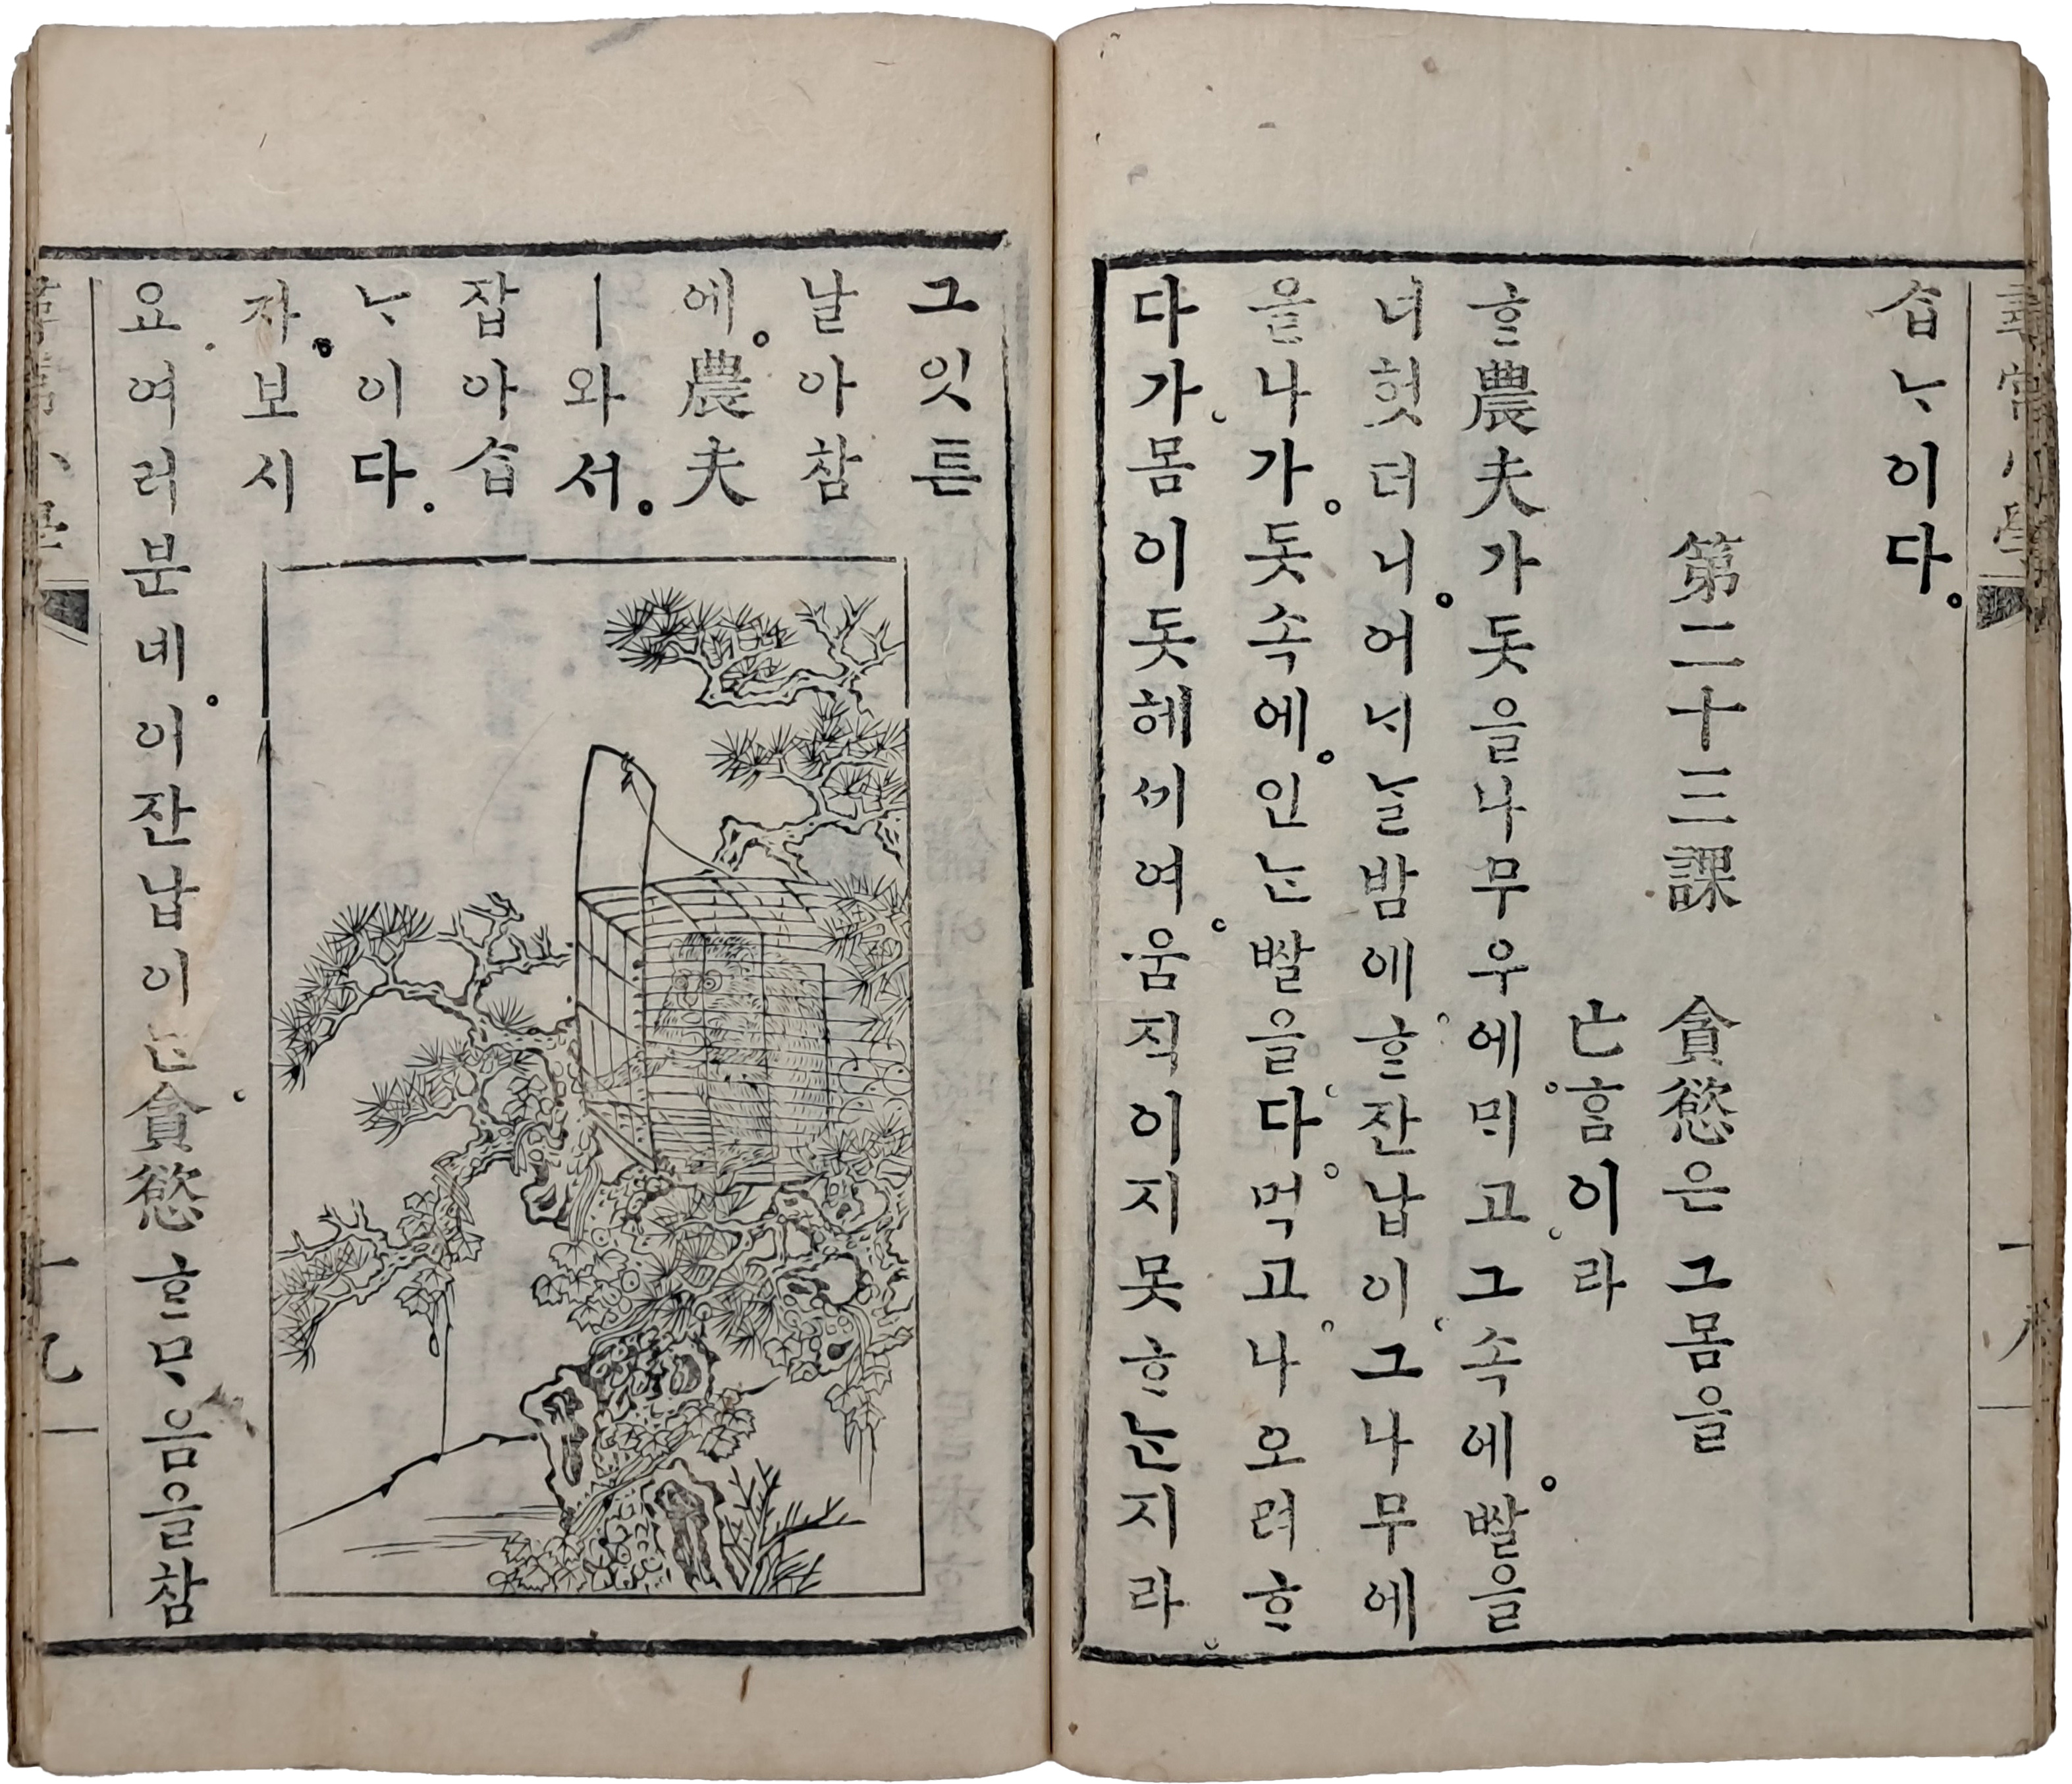 습ᄂᆞ이다。
第二十三課 貪慾은그몸을
亡ᄒᆞᆷ이라
ᄒᆞᆫ農夫가돗을나무우에ᄆᆡ고그속에。ᄡᅡᆯ을
너헛더니。어ᄂᆡᄂᆞᆯ밤에ᄒᆞᆫ잔납이그나무에
올나가。돗속에。인ᄂᆞᆫᄡᅡᆯ을다먹고나오려ᄒᆞ
다가몸이돗헤ᄭᅵ여。움직이지못ᄒᆞᄂᆞᆫ지라
그잇튼
날아참
에。農夫
ㅣ와서。
잡아습
ᄂᆞ이다。
자。보시
요여러분네。이잔납이ᄂᆞᆫ貪慾ᄒᆞᆫᄆᆞ음을참